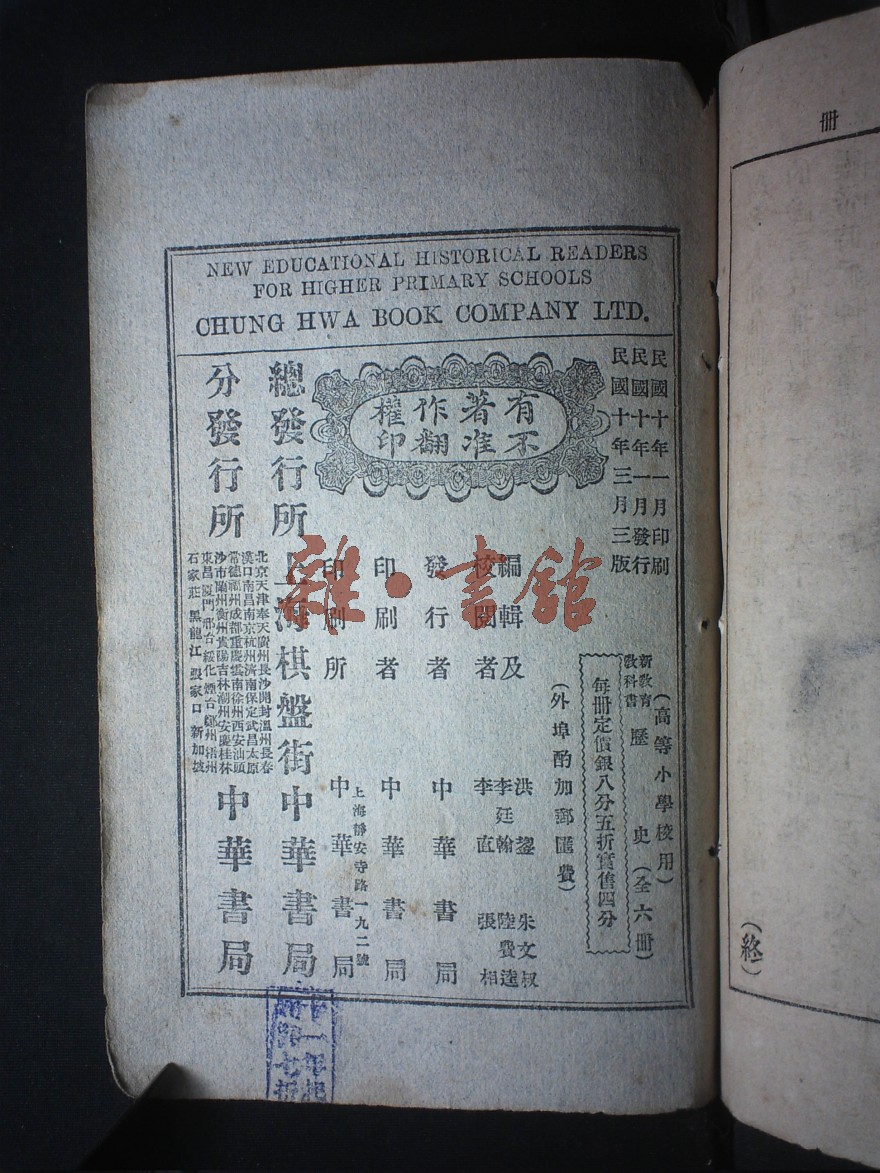 NEW EDUCATIONAL HISTORICAL READERS
FOR HIGHER PRIMARY SCHOOLS
CHUNG HWA BOOK COMPANY LTD.
民國十年一月印刷
民國十年一月發行
民國十年三月三版
有著作權
不准翻印
(高等小學校用)
新教育教科書 歷史(全六冊)
每冊定價銀八分五折實售四分
(外埠酌加郵匯費)
編輯及校閱者 洪鋆 朱文叔
李廷翰 陸費逵
李直 張相
發行者 中華書局
印刷者 中華書局
印刷所 上海靜安寺路一九二號 中華書局
總發行所 上海棋盤街 中華書局
分發行所
北京天津奉天廣州長沙開封溫州長春
漢口南昌南京杭州濟南保定武昌太原
常德福州成都重慶雲南徐州西安汕頭
沙市蘭州衡州貴陽吉林潮州安慶桂林
東昌廈門邢台綏化煙台鄭州梧州
石家莊 黑龍江 張家口 新加坡
中華書局
雜·書館
冊
(終)